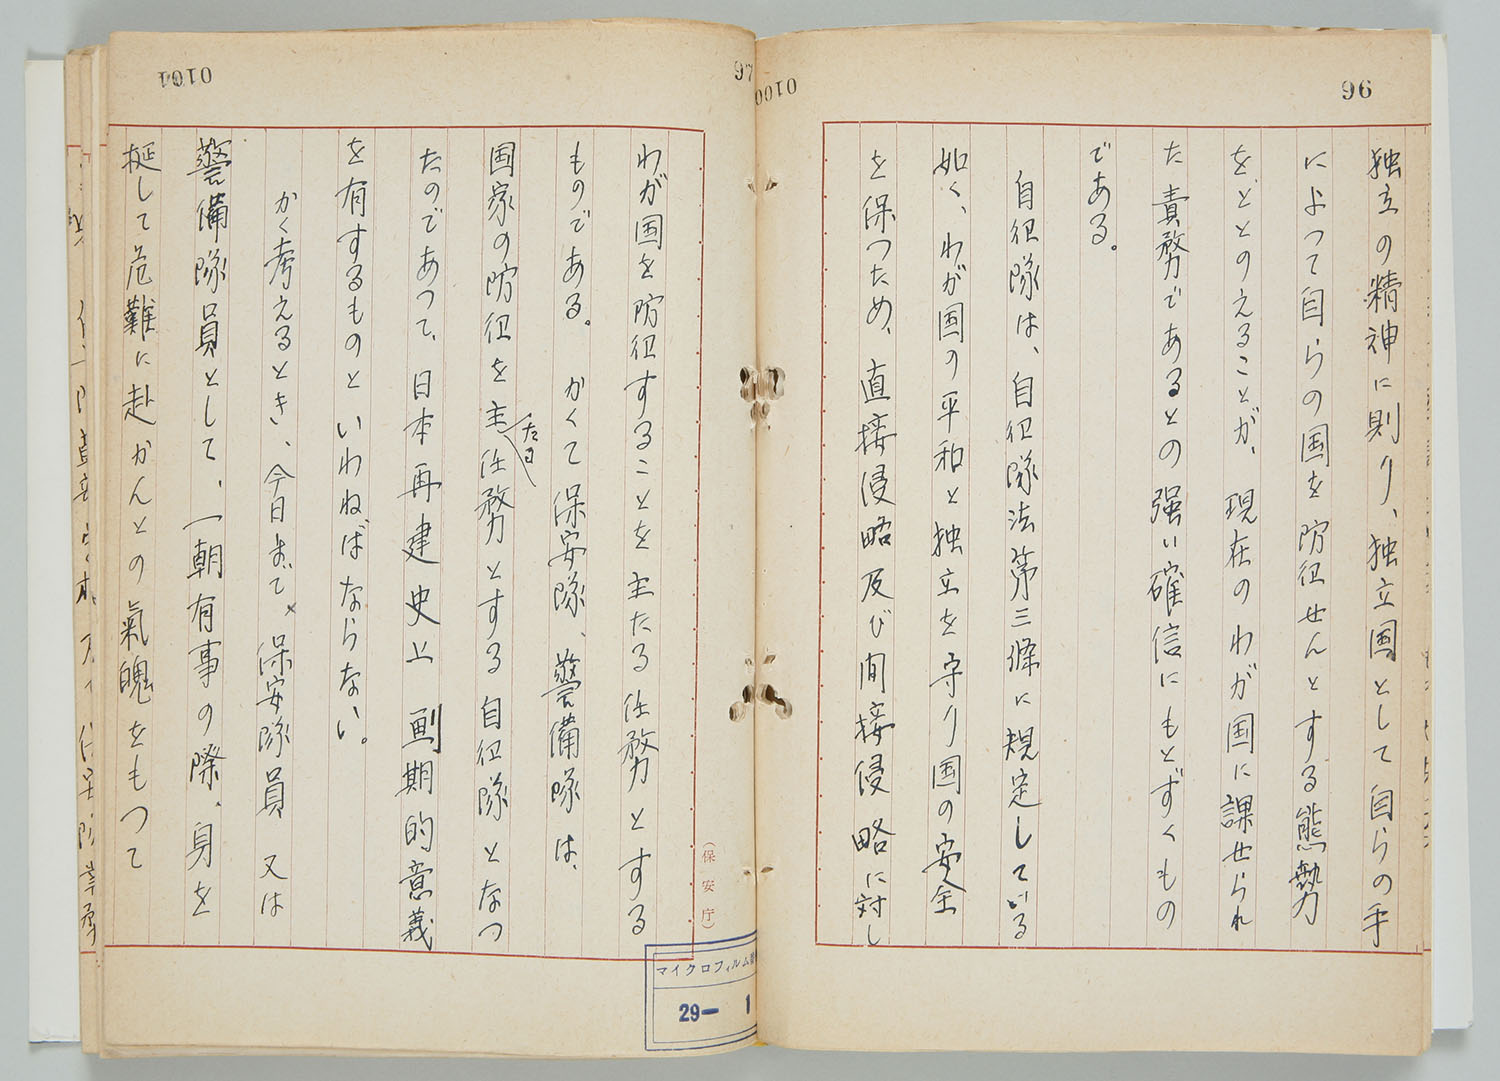 96
0100
独立の精神に則り、独立国として自らの手
によつて自らの国を防衛せんとする態勢
をととのえることが、現在のわが国に課せられ
た責務であるとの強い確信にもとずくもの
である。
自衛隊は、自衛隊法第三條に規定している
如く、わが国の平和と独立を守り国の安全
を保つため、直接侵略及び間接侵略に対し
97
0101
わが国を防衛することを主たる任務とする
ものである。かくて保安隊、警備隊は、
国家の防衛を主たる任務とする自衛隊となつ
たのであつて、日本再建史上画期的意義
を有するものといわねばならない。
かく考えるとき、今日まで、保安隊員又は
警備隊員として、一朝有事の際、身を
挺して危難に赴かんとの氣魄をもつて
(保安庁)
マイクロフィルム
29— 1